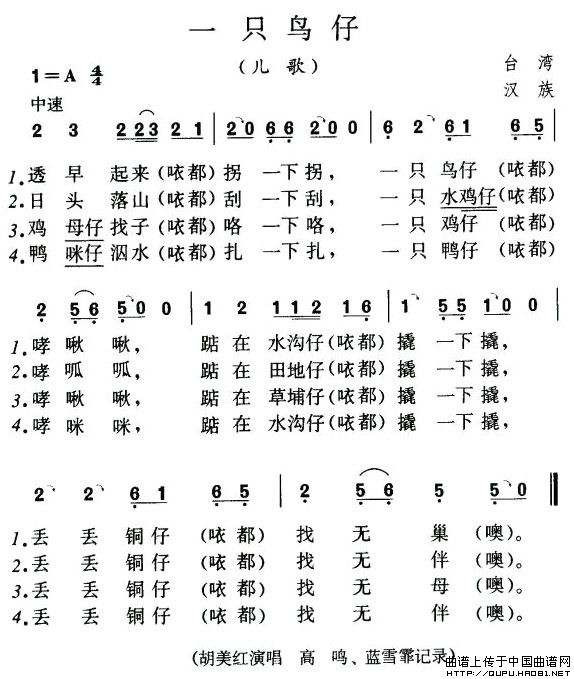 一只鸟仔
(儿歌)
1=A 4/4
台湾
汉族
中速
2 3 223 21 | 20 66 20 0 | 6 2 61 65 |
1.透早起来(咴都)拐一下拐,一只鸟仔(咴都)
2.日头落山(咴都)刮一下刮,一只水鸡仔(咴都)
3.鸡母仔找子(咴都)咯一下咯,一只鸡仔(咴都)
4.鸭咪仔泅水(咴都)扎一下扎,一只鸭仔(咴都)
2 56 500 | 1 2 112 16 | 1 55 100 |
1.哮啾啾,踮在水沟仔(咴都)撬一下撬,
2.哮呱呱,踮在田地仔(咴都)撬一下撬,
3.哮啾啾,踮在草埔仔(咴都)撬一下撬,
4.哮咪咪,踮在水沟仔(咴都)撬一下撬,
2 2 61 65 | 2 56 5 50
1.丢丢铜仔(咴都)找无巢(噢)。
2.丢丢铜仔(咴都)找无伴(噢)。
3.丢丢铜仔(咴都)找无母(噢)。
4.丢丢铜仔(咴都)找无伴(噢)。
(胡美红演唱 高鸣、蓝雪霏记录)
曲谱上传于中国曲谱网
http://QUPU.HAO81.NET